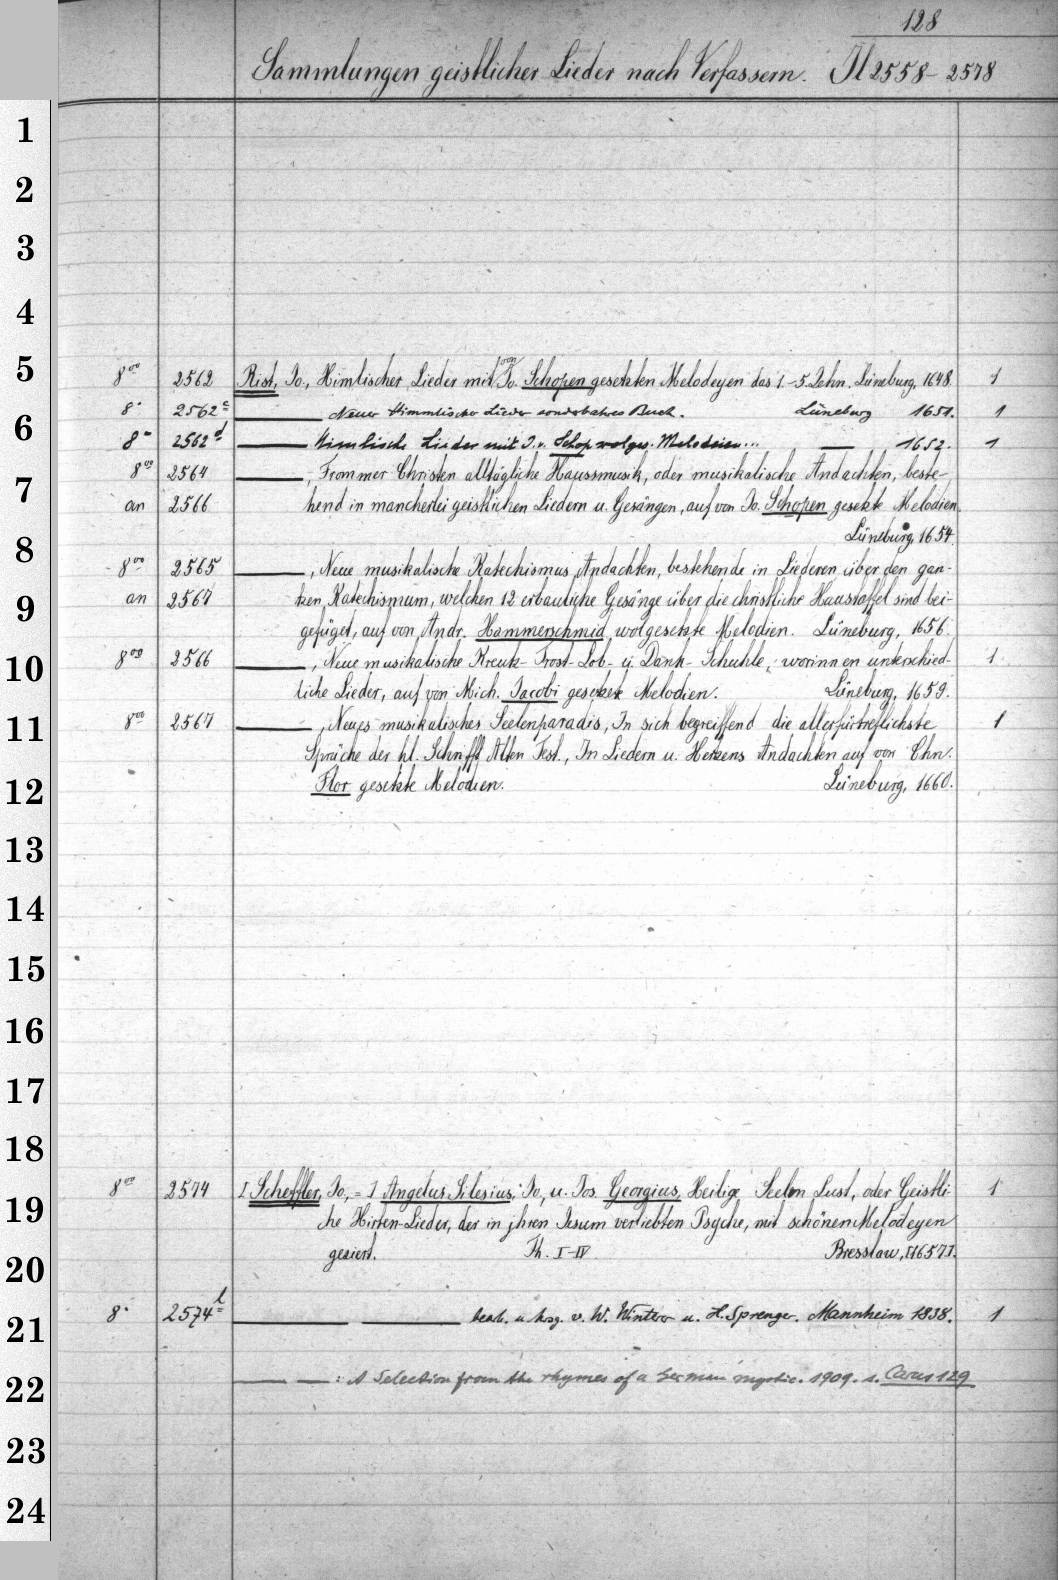 128
Sammlungen geistlicher Lieder nach Verfassern. Il 2558-2578
1
2
3
4
5
8vo 2562 Rist, Jo., Himlischer Lieder mit von Jo. Schopen gesetzten Melodeyen das 1.-5. Zehn. Lüneburg, 1648. 1
8° 2562c ——— Neuer Himmlischer Lieder sonderbahres Buch. Lüneburg 1651. 1
6
8° 2562d ——— Himlische Lieder mit J. v. Schop wolges. Melodeien... —— 1652. 1
8vo 2564 ———, Frommer Christen alltägliche Haussmusik, oder musikalische Andachten, beste-
7
an 2566 hend in mancherlei geistlichen Liedern u. Gesängen, auf von Jo. Schopen gesetzte Melodien.
Lüneburg, 1654.
8
8vo 2565 ———, Neue musikalische Katechismus Andachten, bestehende in Liederen über den gan-
9
an 2567 tzen Katechismum, welchen 12 erbauliche Gesänge über die christliche Haustaffel sind bei-
gefüget, auf von Andr. Hammerschmid wolgesetzte Melodien. Lüneburg, 1656.
10
8vo 2566 ———, Neue musikalische Kreutz- Trost- Lob- u. Dank- Schuhle, worinnen unterschied- 1
liche Lieder, auf von Mich. Jacobi gesetzte Melodien. Lüneburg, 1659.
11
8vo 2567 ———, Neues musikalisches Seelenparadis, In sich begreiffend die allerfürtreflichste 1
Sprüche der hl. Schrifft Alten Test., In Liedern u. Hertzens Andachten auf von Chn.
12
Flor gesetzte Melodien. Lüneburg, 1660.
13
14
15
16
17
18
19
8vo 2574 I Scheffler, Jo., = I Angelus Silesius, Jo., u. Jos. Georgius, Heilige Seelen Lust, oder Geistli- 1
che Hirten-Lieder, der in jhren Jesum verliebten Psyche, mit schönen Melodeyen
20
gesiert. Th. I-IV Bresslau, [1657].
21
8° 2574b ——— ——— bearb. u. hrsg. v. W. Winterer u. H. Sprenger. Mannheim 1838. 1
22
—— ——: A Selection from the rhymes of a German mystic. 1909. s. Carus 129
23
24